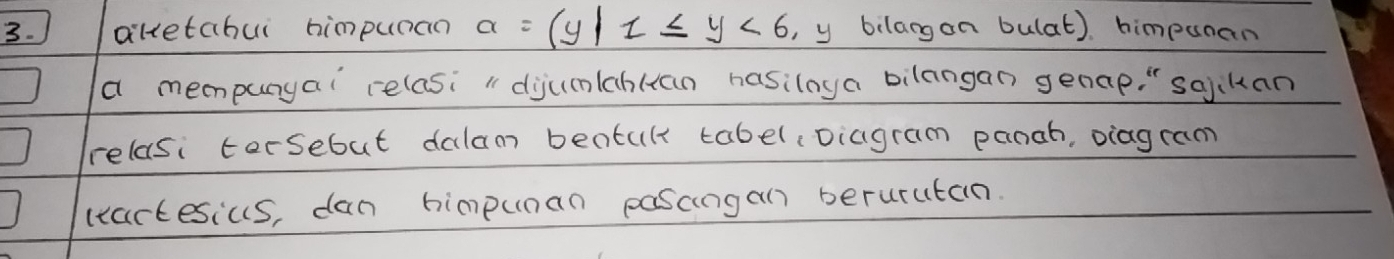 3. diketahui himpunan a = (y | 1 ≤ y < 6, y bilangan bulat). himpunan
a mempunyai relasi "dijumlahkan hasilnya bilangan genap." sajikan
relasi tersebut dalam bentuk tabel, Diagram panah, Diagram
kartesius, dan himpunan pasangan berurutan.